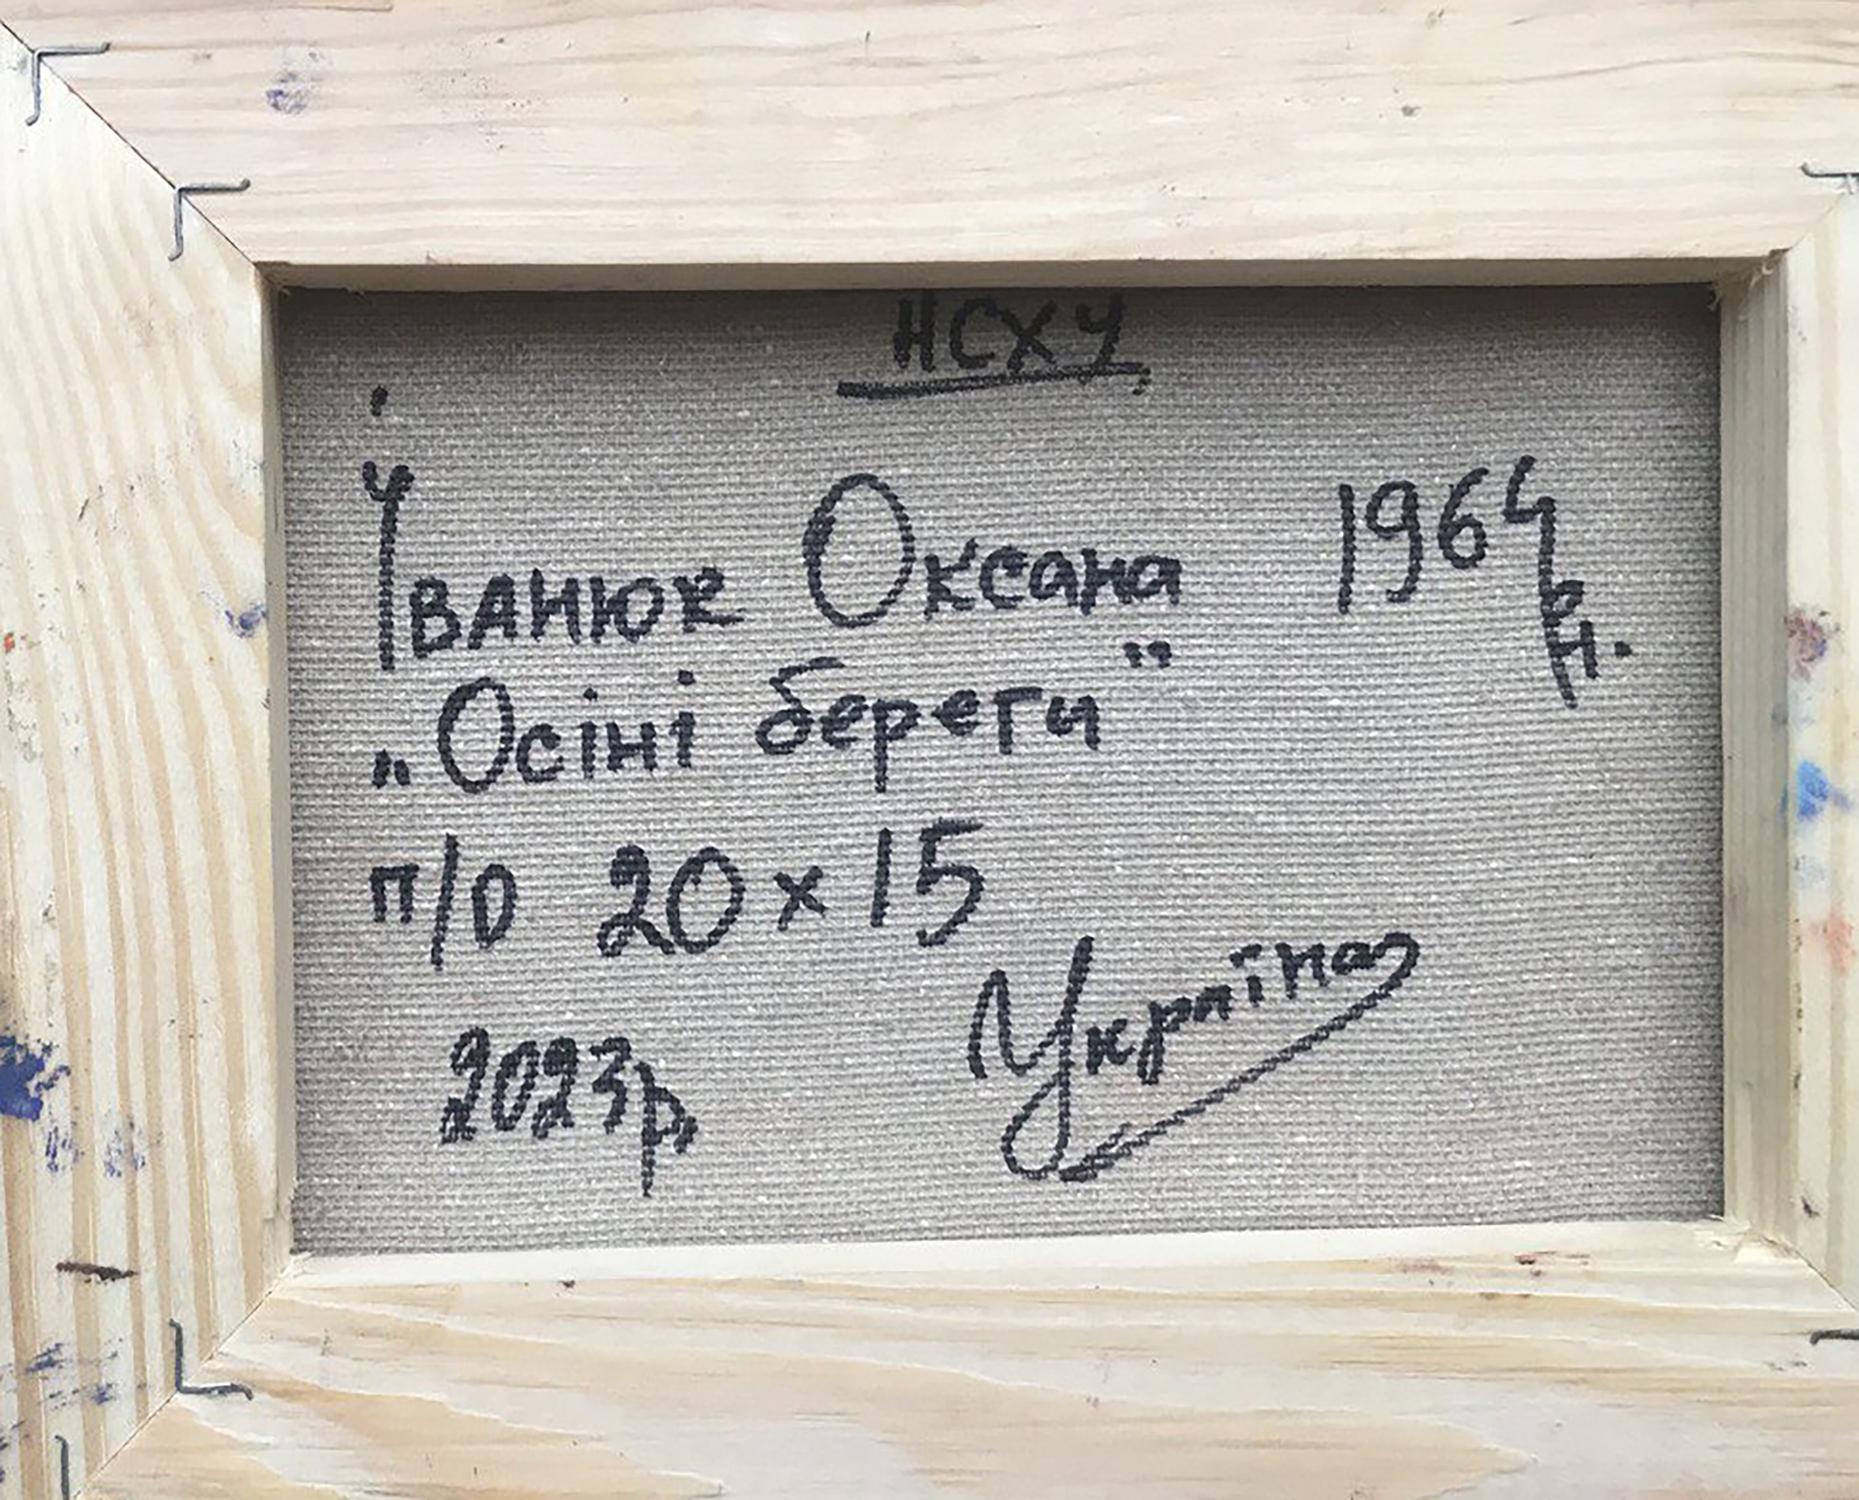 НСХУ
Іванюк Оксана 1964 р.н.
„Осіні береги"
п/о 20×15
2023р.
Україна